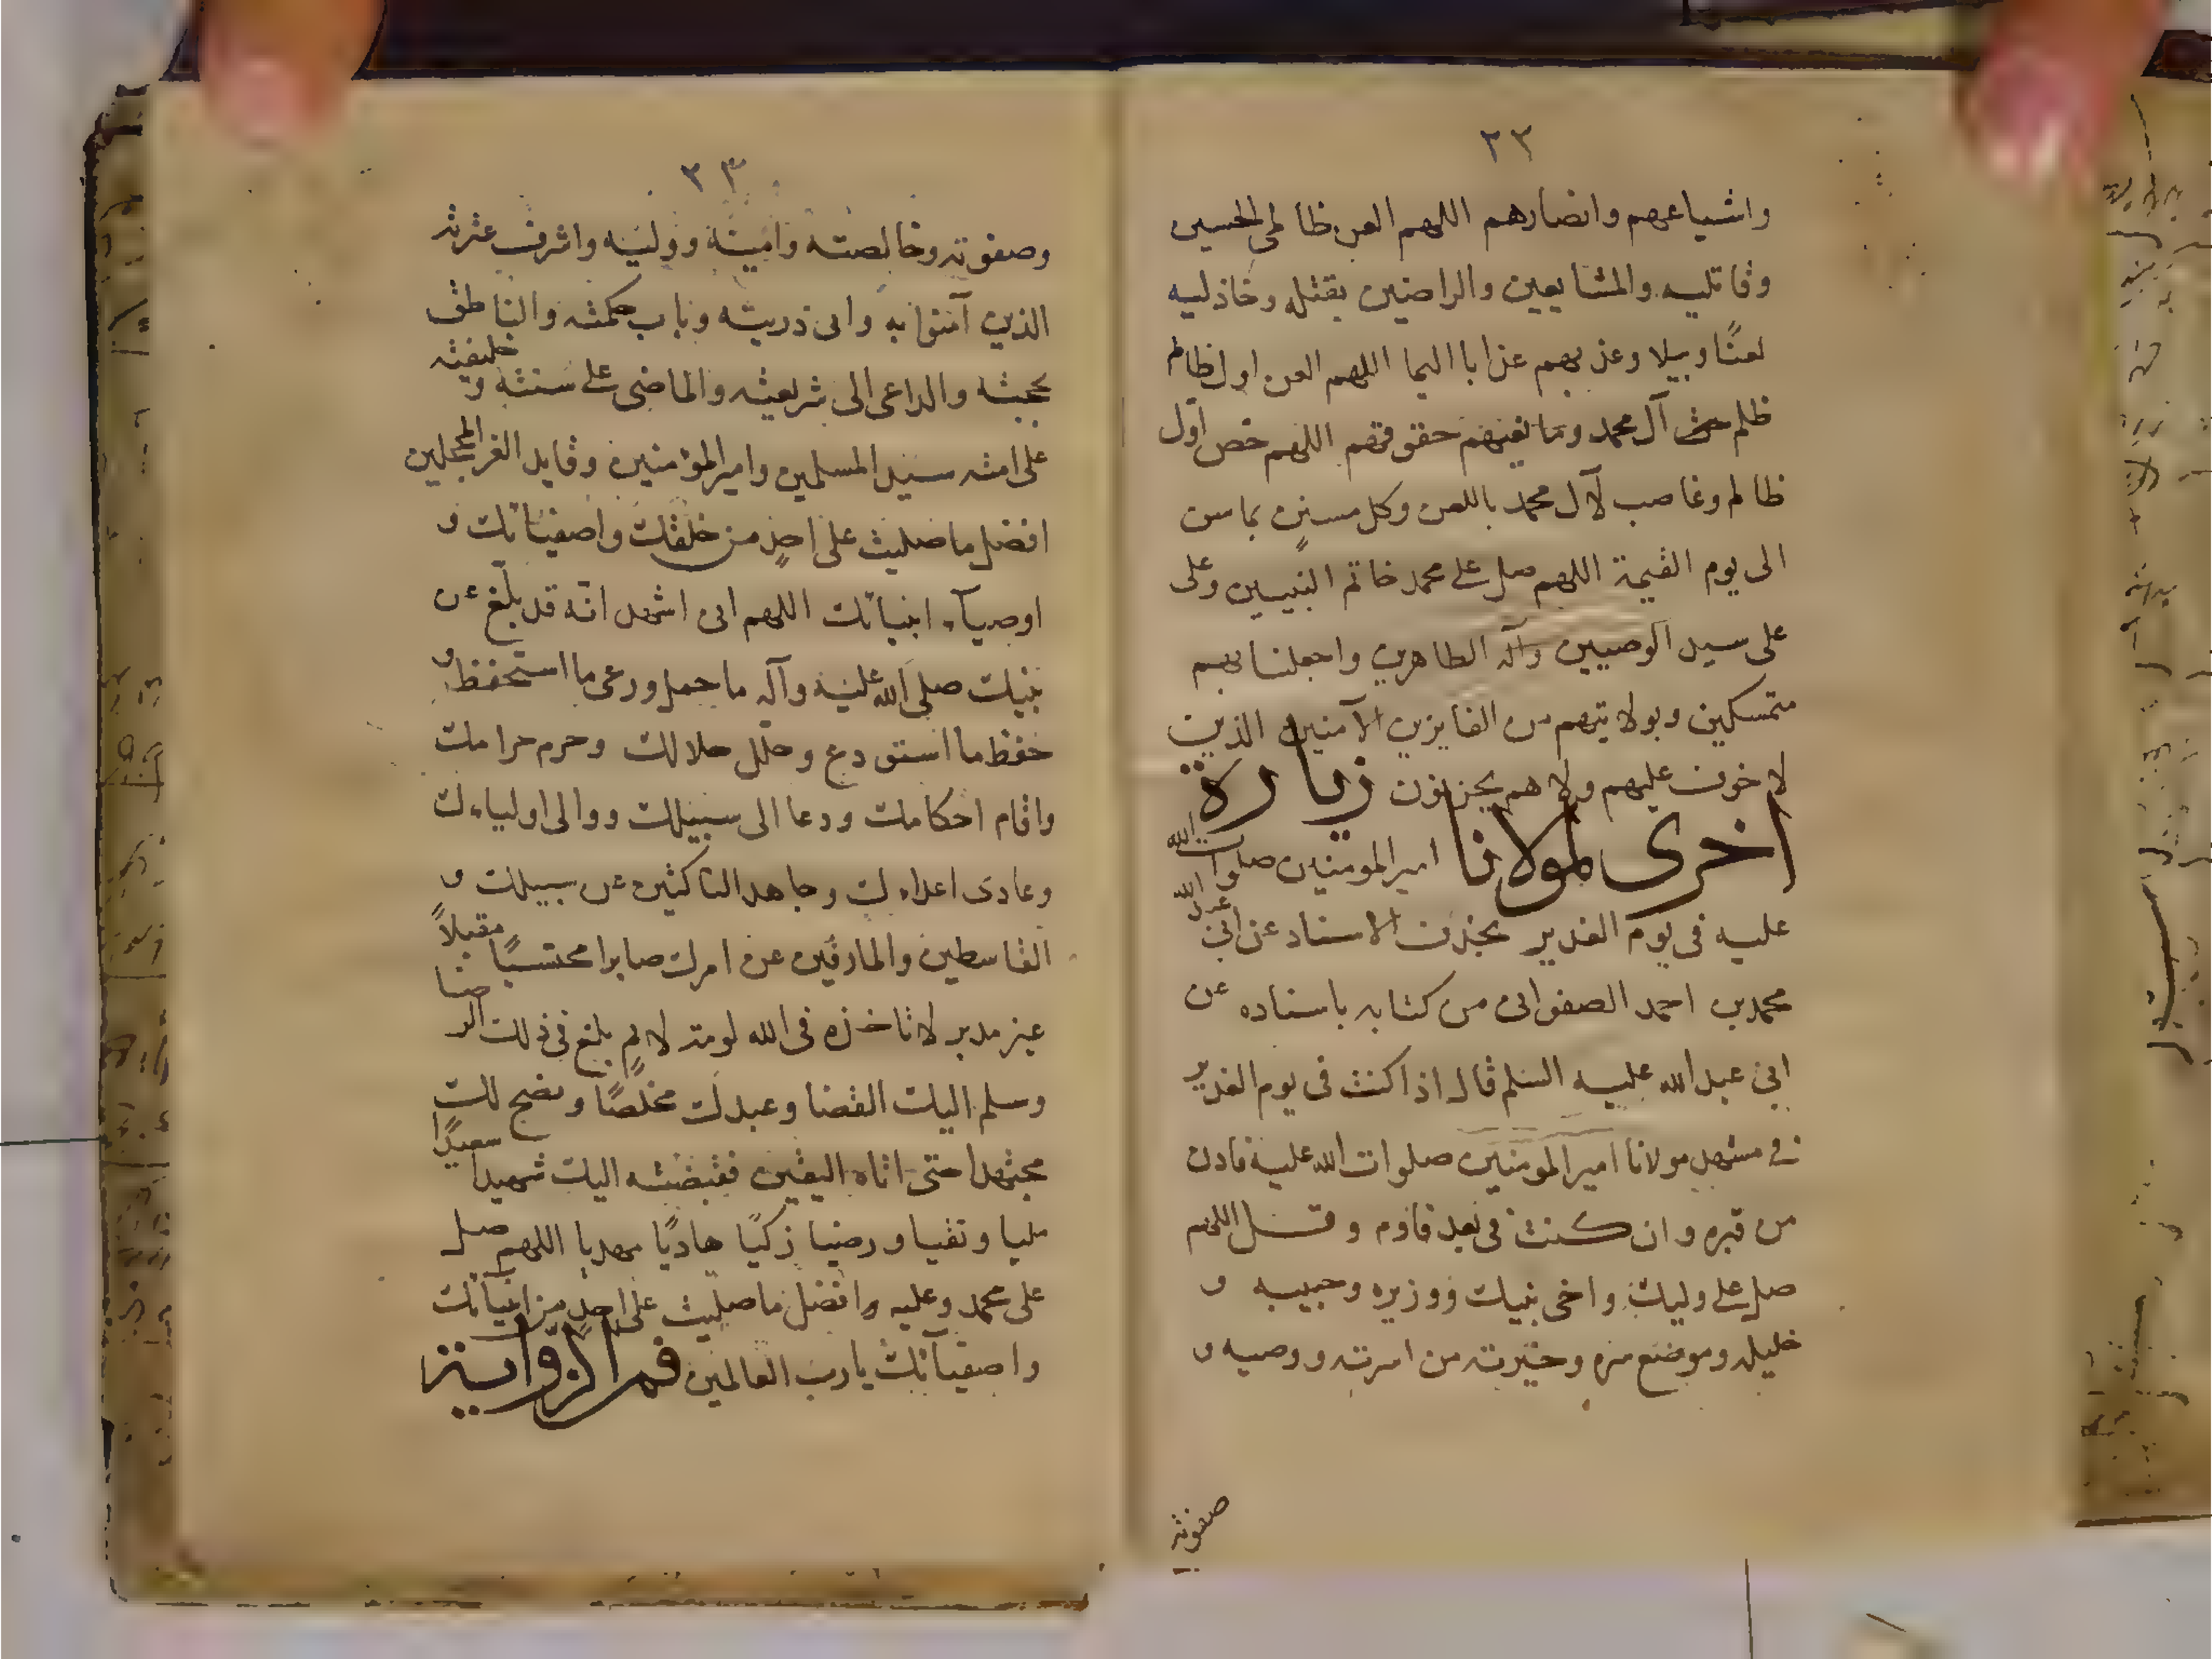 ٢٢
واشياعهم وانصارهم اللهم العن ظالمي الحسين
وقاتليه والمتتابعين والراضين بقتله وخاذليه
لعنًا وبيلا وعذبهم عذابا اليما اللهم العن اول ظالم
ظلم آل محمد حقوقهم اللهم خص اول
ظالم وغاصب لآل محمد باللعن وكل مستنٍ بما سن
الى يوم القيمة اللهم صل على محمد خاتم النبيين وعلى
على سيد الوصيين وآله الطاهرين واجعلنا بهم
متمسكين وبولايتهم من الفايزين الآمنين الذين
لا خوف عليهم ولا هم يحزنون زيارة
اخرى لمولانا امير المومنين صلوات الله
عليه فى يوم الغدير بحذف الاسناد عن ابي عبد الله
محمد بن احمد الصفوانى من كتابه باسناده عن
ابي عبد الله عليه السلم قال اذا كنت فى يوم الغدير
في مشهد مولانا امير المومنين صلوات الله عليه فادن
من قبره وان كنت فى بعد فاوم وقل اللهم
صل على وليك واخى نبيك ووزيره وحبيبه و
خليله وموضع سره وخيرته من اسرته ووصيه و
صفوته
٢٣
وصفوته وخالصته وامينه ووليه واشرف عترته
الذين آمنوا به وابى ذريته وباب حكمته والناطق
بحجته والداعى الى شريعته والماضى على سنته و خليفته
على امته سيد المسلمين وامير المؤمنين وقايد الغر المحجلين
افضل ما صليت على احدٍ من خلقك واصفيائك و
اوصيآء انبيائك اللهم انى اشهد انه قد بلغ عن
نبيك صلى الله عليه وآله ما حمل ورعى ما استحفظ و
حفظ ما استودع وحلل حلالك وحرم حرامك
واقام احكامك ودعا الى سبيلك ووالى اولياءك
وعادى اعداءك وجاهد الناكثين عن سبيلك و
القاسطين والمارقين عن امرك صابرا محتسبًا مقبلاً
غير مدبر لا تاخذه فى الله لومة لايمٍ بلغ فى ذلك الرضا
وسلم اليك القضا وعبدك مخلصًا ونصح لك
مجتهدا حتى اتاه اليقين فقبضته اليك شهيدا سعيدًا
مليا وتقيا ورضيا زكيًا هاديًا مهديا اللهم صل
على محمد وعليه وافضل ما صليت على احدٍ من انبيائك
واصفيآئك يا رب العالمين